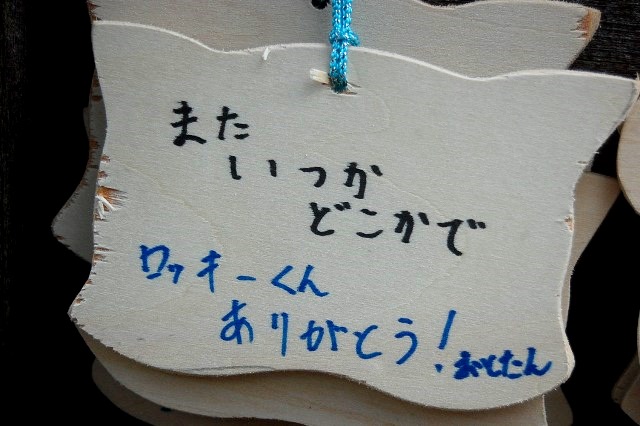 また
いつか
どこかで
ロッキーくん
ありがとう！
おとたん